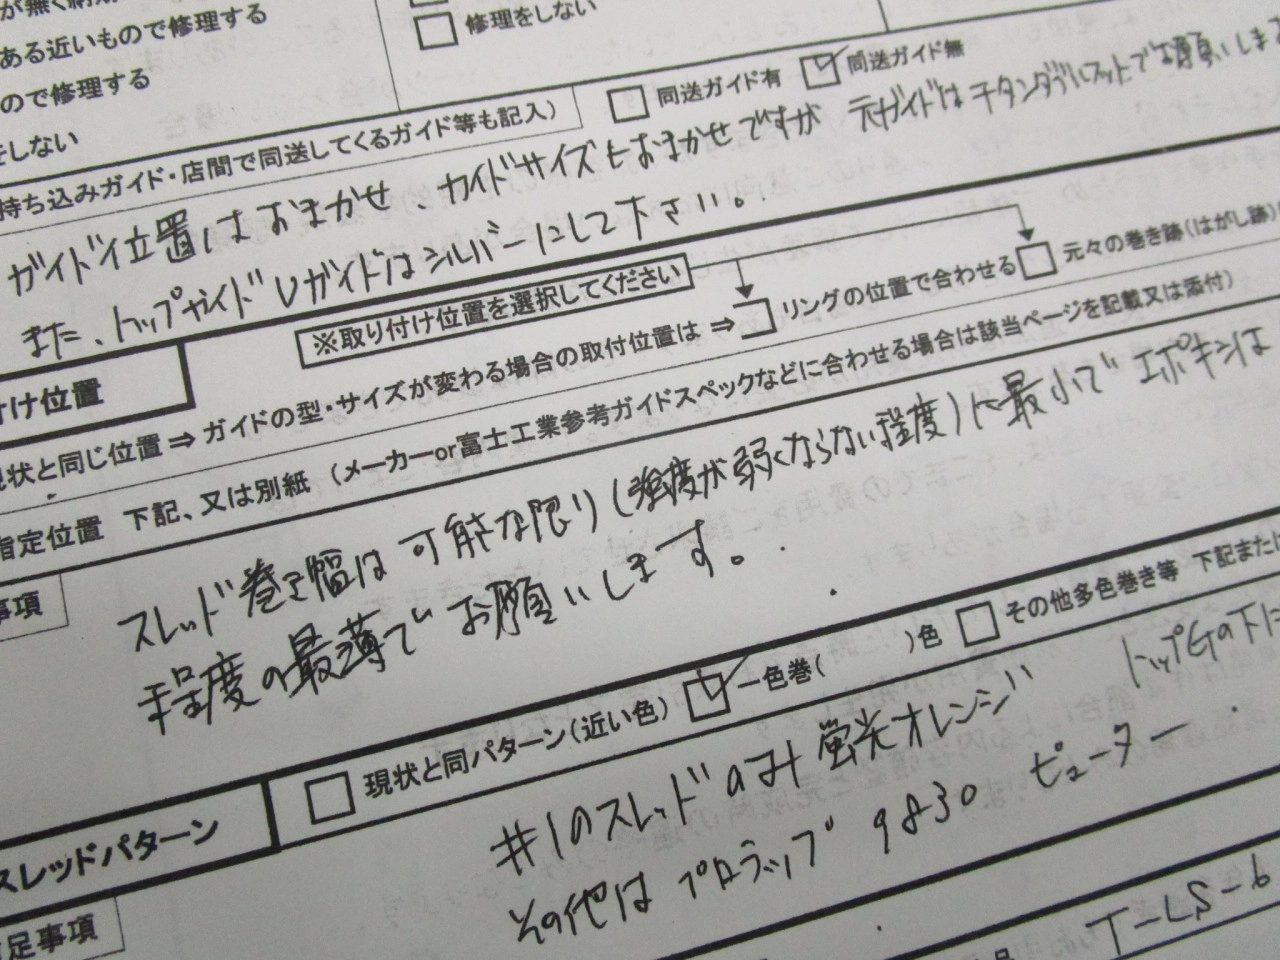 ある近いもので修理する
修理をしない
ので修理する
をしない
同送ガイド有 同送ガイド無
持ち込みガイド・店間で同送してくるガイド等も記入）
ガイド位置はおまかせ、ガイドサイズもおまかせですが 元ガイドはチタンダブルフットでお願いしま
また、トップガイドLガイドはシルバーにして下さい。
※取り付け位置を選択してください
付け位置
現状と同じ位置⇒ガイドの型・サイズが変わる場合の取付位置は⇒ リングの位置で合わせる 元々の巻き跡（はがし跡）
指定位置 下記、又は別紙 （メーカーor富士工業参考ガイドスペックなどに合わせる場合は該当ページを記載又は添付）
事項
スレッド巻き幅は可能な限り（強度が弱くならない程度）に最小で エポキシは
程度の最薄でお願いします。
スレッドパターン
現状と同パターン（近い色） 一色巻（ ）色 その他多色巻き等 下記または
#1のスレッドのみ蛍光オレンジ トップGの下に
その他はプロラップ 9830 ピューター
足事項
T-LS-6